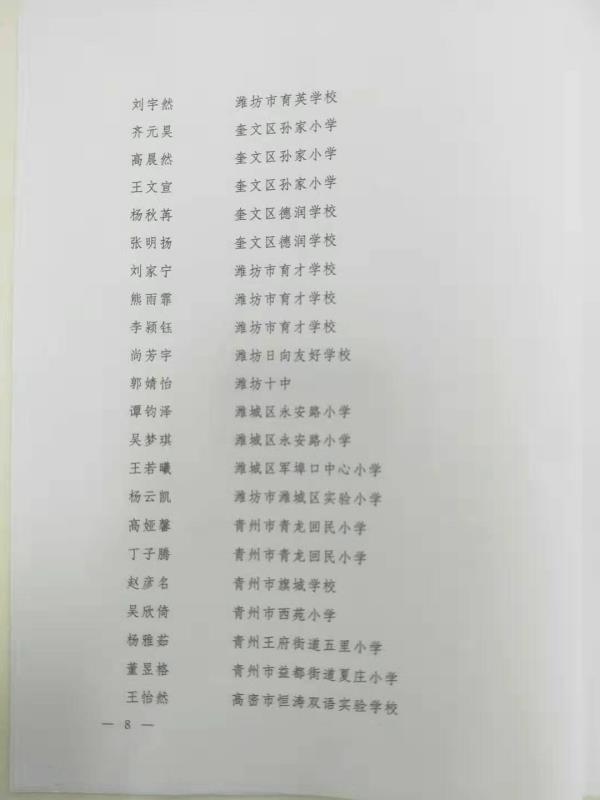 刘宇然 潍坊市育英学校
齐元昊 奎文区孙家小学
高晨然 奎文区孙家小学
王文宣 奎文区孙家小学
杨秋苒 奎文区德润学校
张明扬 奎文区德润学校
刘家宁 潍坊市育才学校
熊雨霏 潍坊市育才学校
李颍钰 潍坊市育才学校
尚芳宇 潍坊日向友好学校
郭婧怡 潍坊十中
谭钧泽 潍城区永安路小学
吴梦琪 潍城区永安路小学
王若曦 潍城区军埠口中心小学
杨云凯 潍坊市潍城区实验小学
高娅馨 青州市青龙回民小学
丁子腾 青州市青龙回民小学
赵彦名 青州市旗城学校
吴欣倚 青州市西苑小学
杨雅茹 青州王府街道五里小学
董昱格 青州市益都街道夏庄小学
王怡然 高密市恒涛双语实验学校
— 8 —